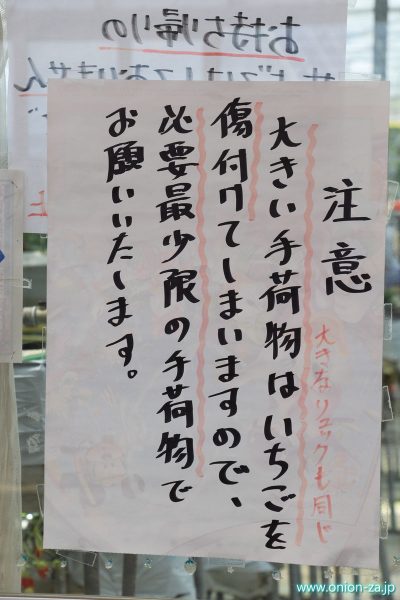 注意
大きなリュックも同じ
大きい手荷物はいちごを
傷付けてしまいますので、
必要最少限の手荷物で
お願いいたします。
お持ち帰りの
サービスはしておりません
www.onion-za.jp